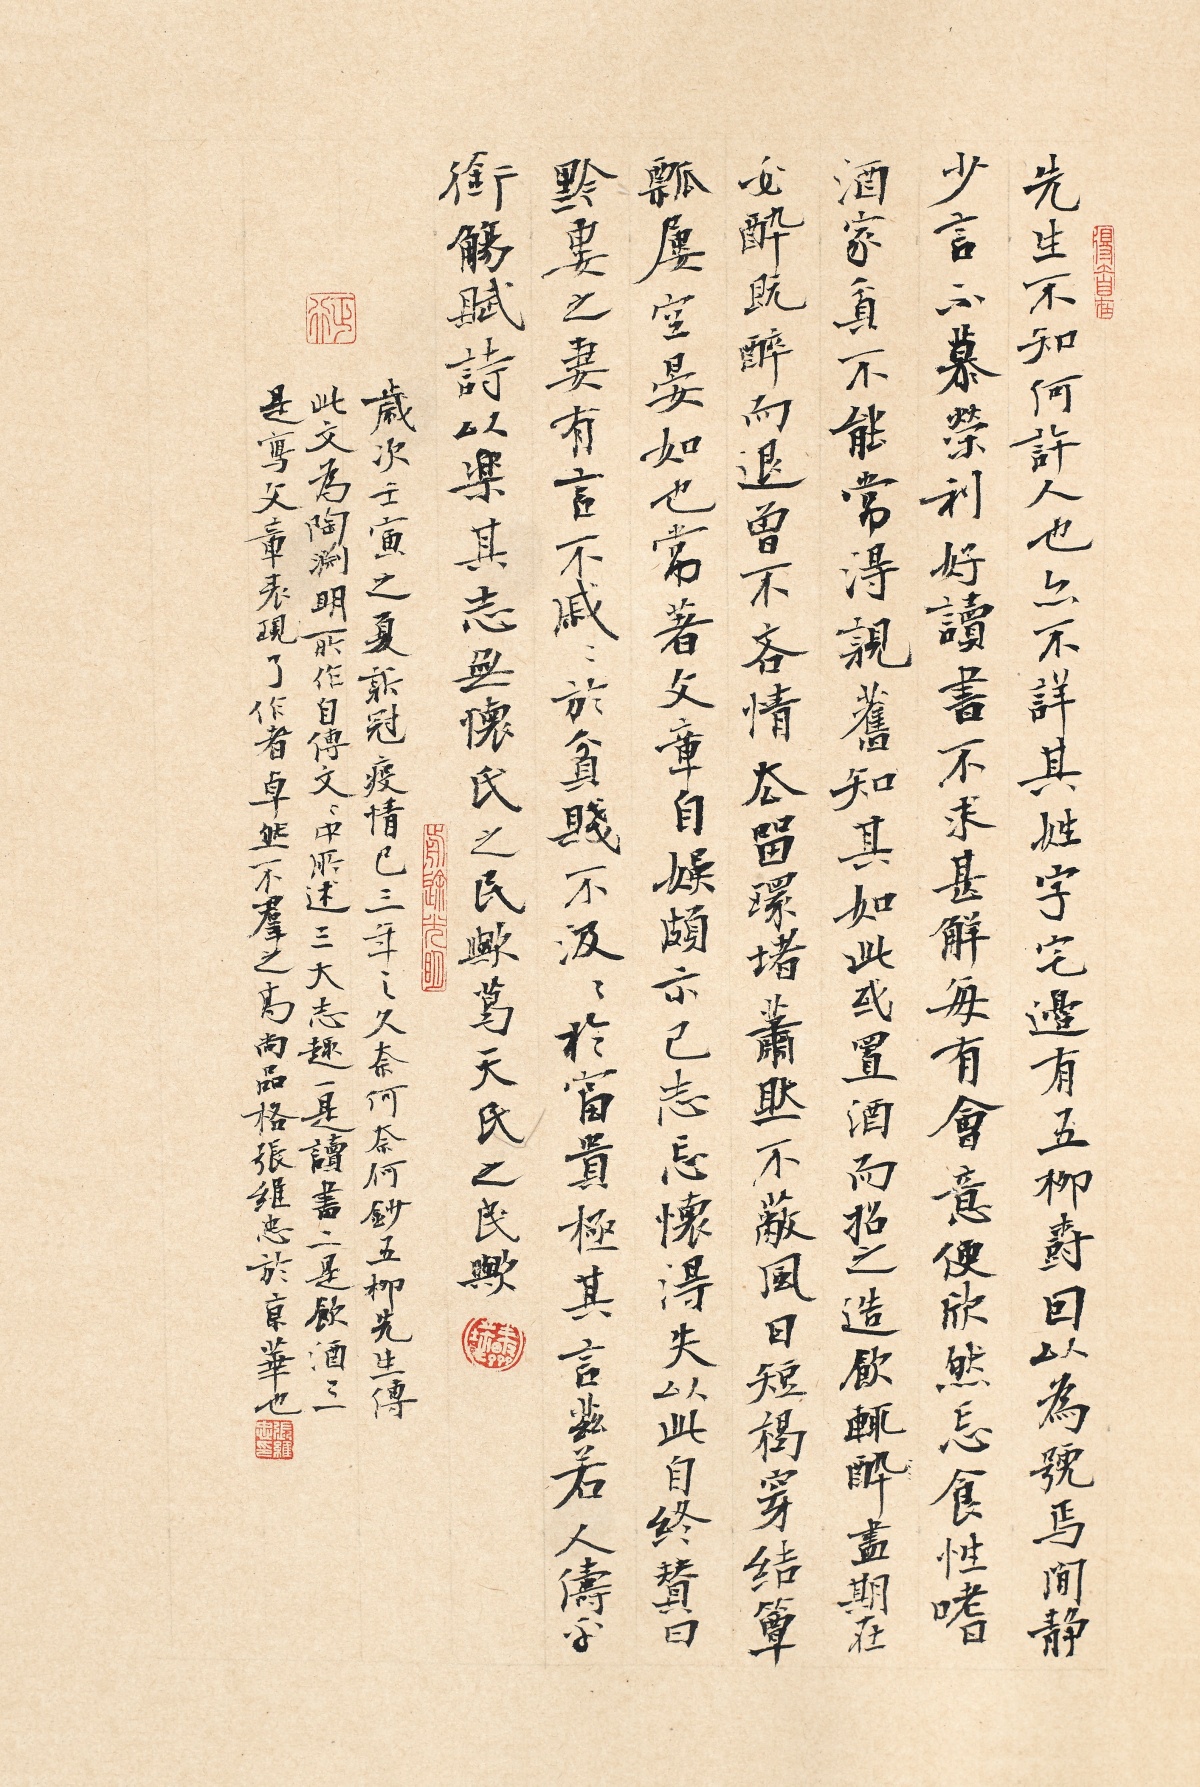 先生不知何許人也亦不詳其姓字宅邊有五柳樹因以為號焉閒静
少言不慕榮利好讀書不求甚解每有會意便欣然忘食性嗜
酒家貧不能常得親舊知其如此或置酒而招之造飲輒醉盡期在
必醉既醉而退曾不吝情去留環堵蕭然不蔽風日短褐穿結簞
瓢屢空晏如也常著文章自娱頗示己志忘懷得失以此自終贊曰
黔婁之妻有言不戚〻於貧賤不汲〻於富貴極其言兹若人儔乎
銜觴賦詩以樂其志無懷氏之民歟葛天氏之民歟
歲次壬寅之夏新冠疫情已三年之久奈何奈何鈔五柳先生傳
此文為陶淵明所作自傳文〻中所述三大志趣一是讀書二是飲酒三
是寫文章表現了作者卓然不羣之高尚品格張維忠於京華也
張維忠印